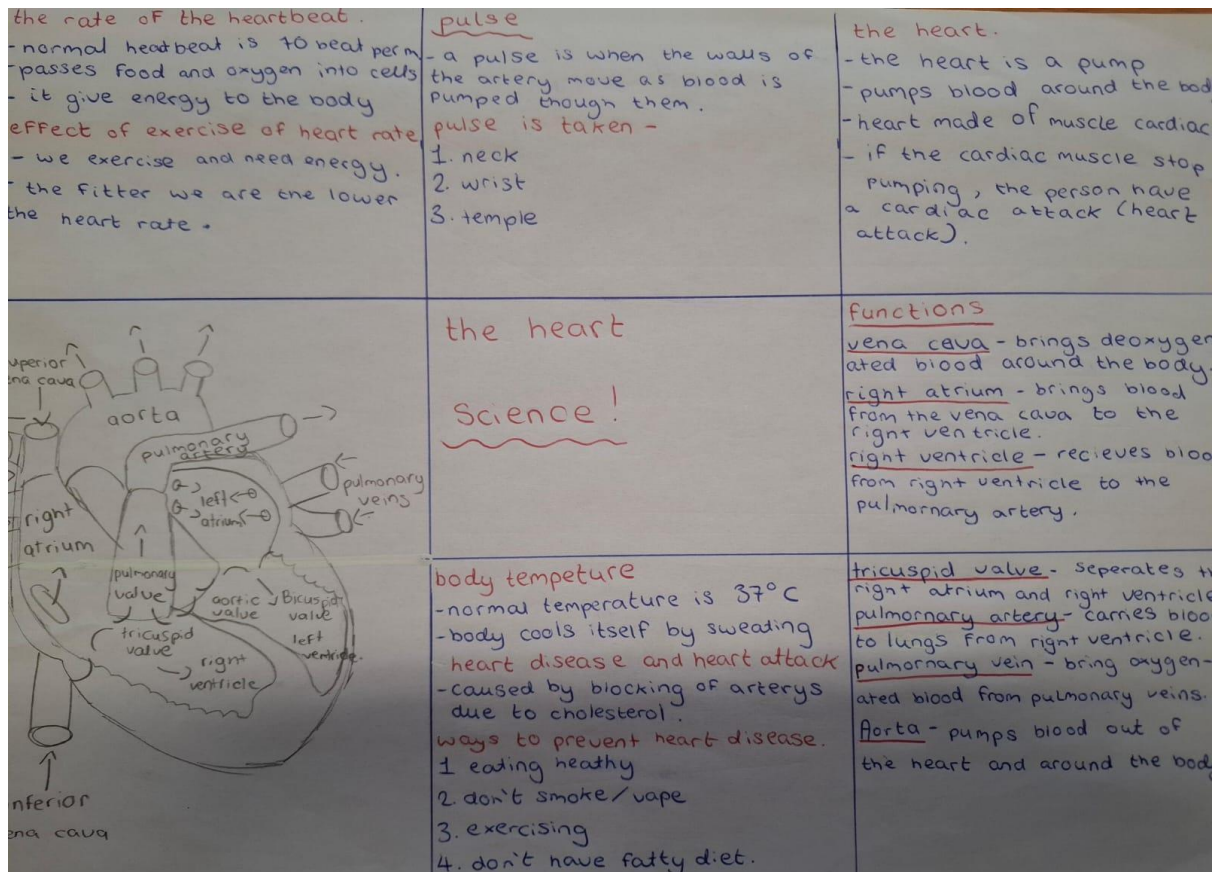 the rate of the heartbeat.
- normal heatbeat is 70 beat per m
- passes food and oxygen into cells
- it give energy to the body
effect of exercise of heart rate
- we exercise and need energy.
- the fitter we are the lower
the heart rate.
pulse
- a pulse is when the walls of
the artery move as blood is
pumped though them.
pulse is taken -
1. neck
2. wrist
3. temple
the heart.
- the heart is a pump
- pumps blood around the bod
- heart made of muscle cardiac
- if the cardiac muscle stop
pumping, the person have
a cardiac attack (heart
attack).
uperior
na cava
aorta
pulmonary
artery
pulmonary
veins
left
atrium
right
atrium
pulmonary
valve
aortic
valve
Bicuspid
valve
tricuspid
valve
left
ventricle.
right
ventricle
nferior
ena cava
the heart
Science!
functions
vena cava - brings deoxygen
ated blood around the body.
right atrium - brings blood
from the vena cava to the
right ventricle.
right ventricle - recieves bloo
from right ventricle to the
pulmornary artery.
body tempeture
- normal temperature is 37°C
- body cools itself by sweating
heart disease and heart attack
- caused by blocking of arterys
due to cholesterol.
ways to prevent heart disease.
1 eating heathy
2. don't smoke/vape
3. exercising
4. don't have fatty diet.
tricuspid valve - seperates th
right atrium and right ventricle
pulmornary artery - carries bloo
to lungs from right ventricle.
pulmornary vein - bring oxygen-
ated blood from pulmonary veins.
Aorta - pumps blood out of
the heart and around the body